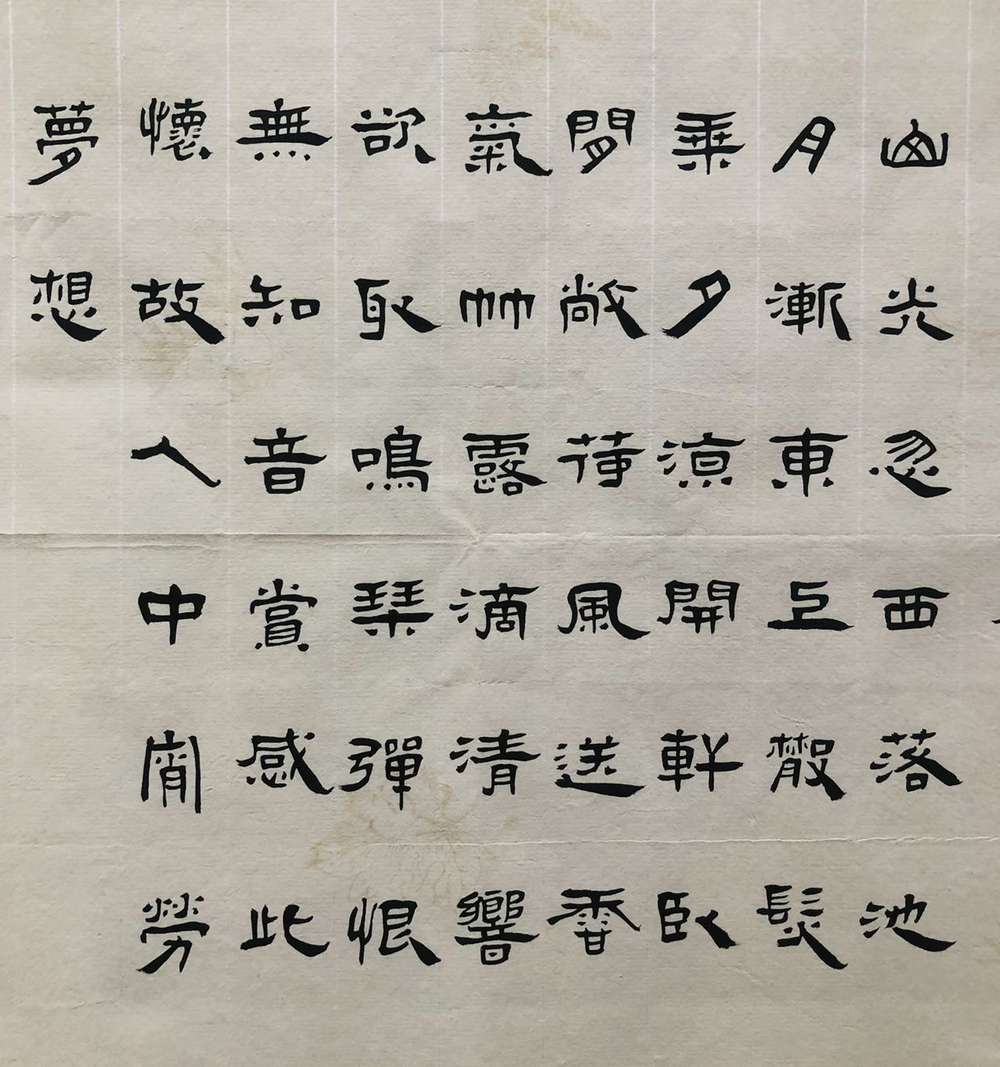 山光忽西落池
月漸東上散髮
乘夕涼開軒臥
閒敞荷風送香
氣竹露滴清響
欲取鳴琴彈恨
無知音賞感此
懷故人中宵勞
夢想